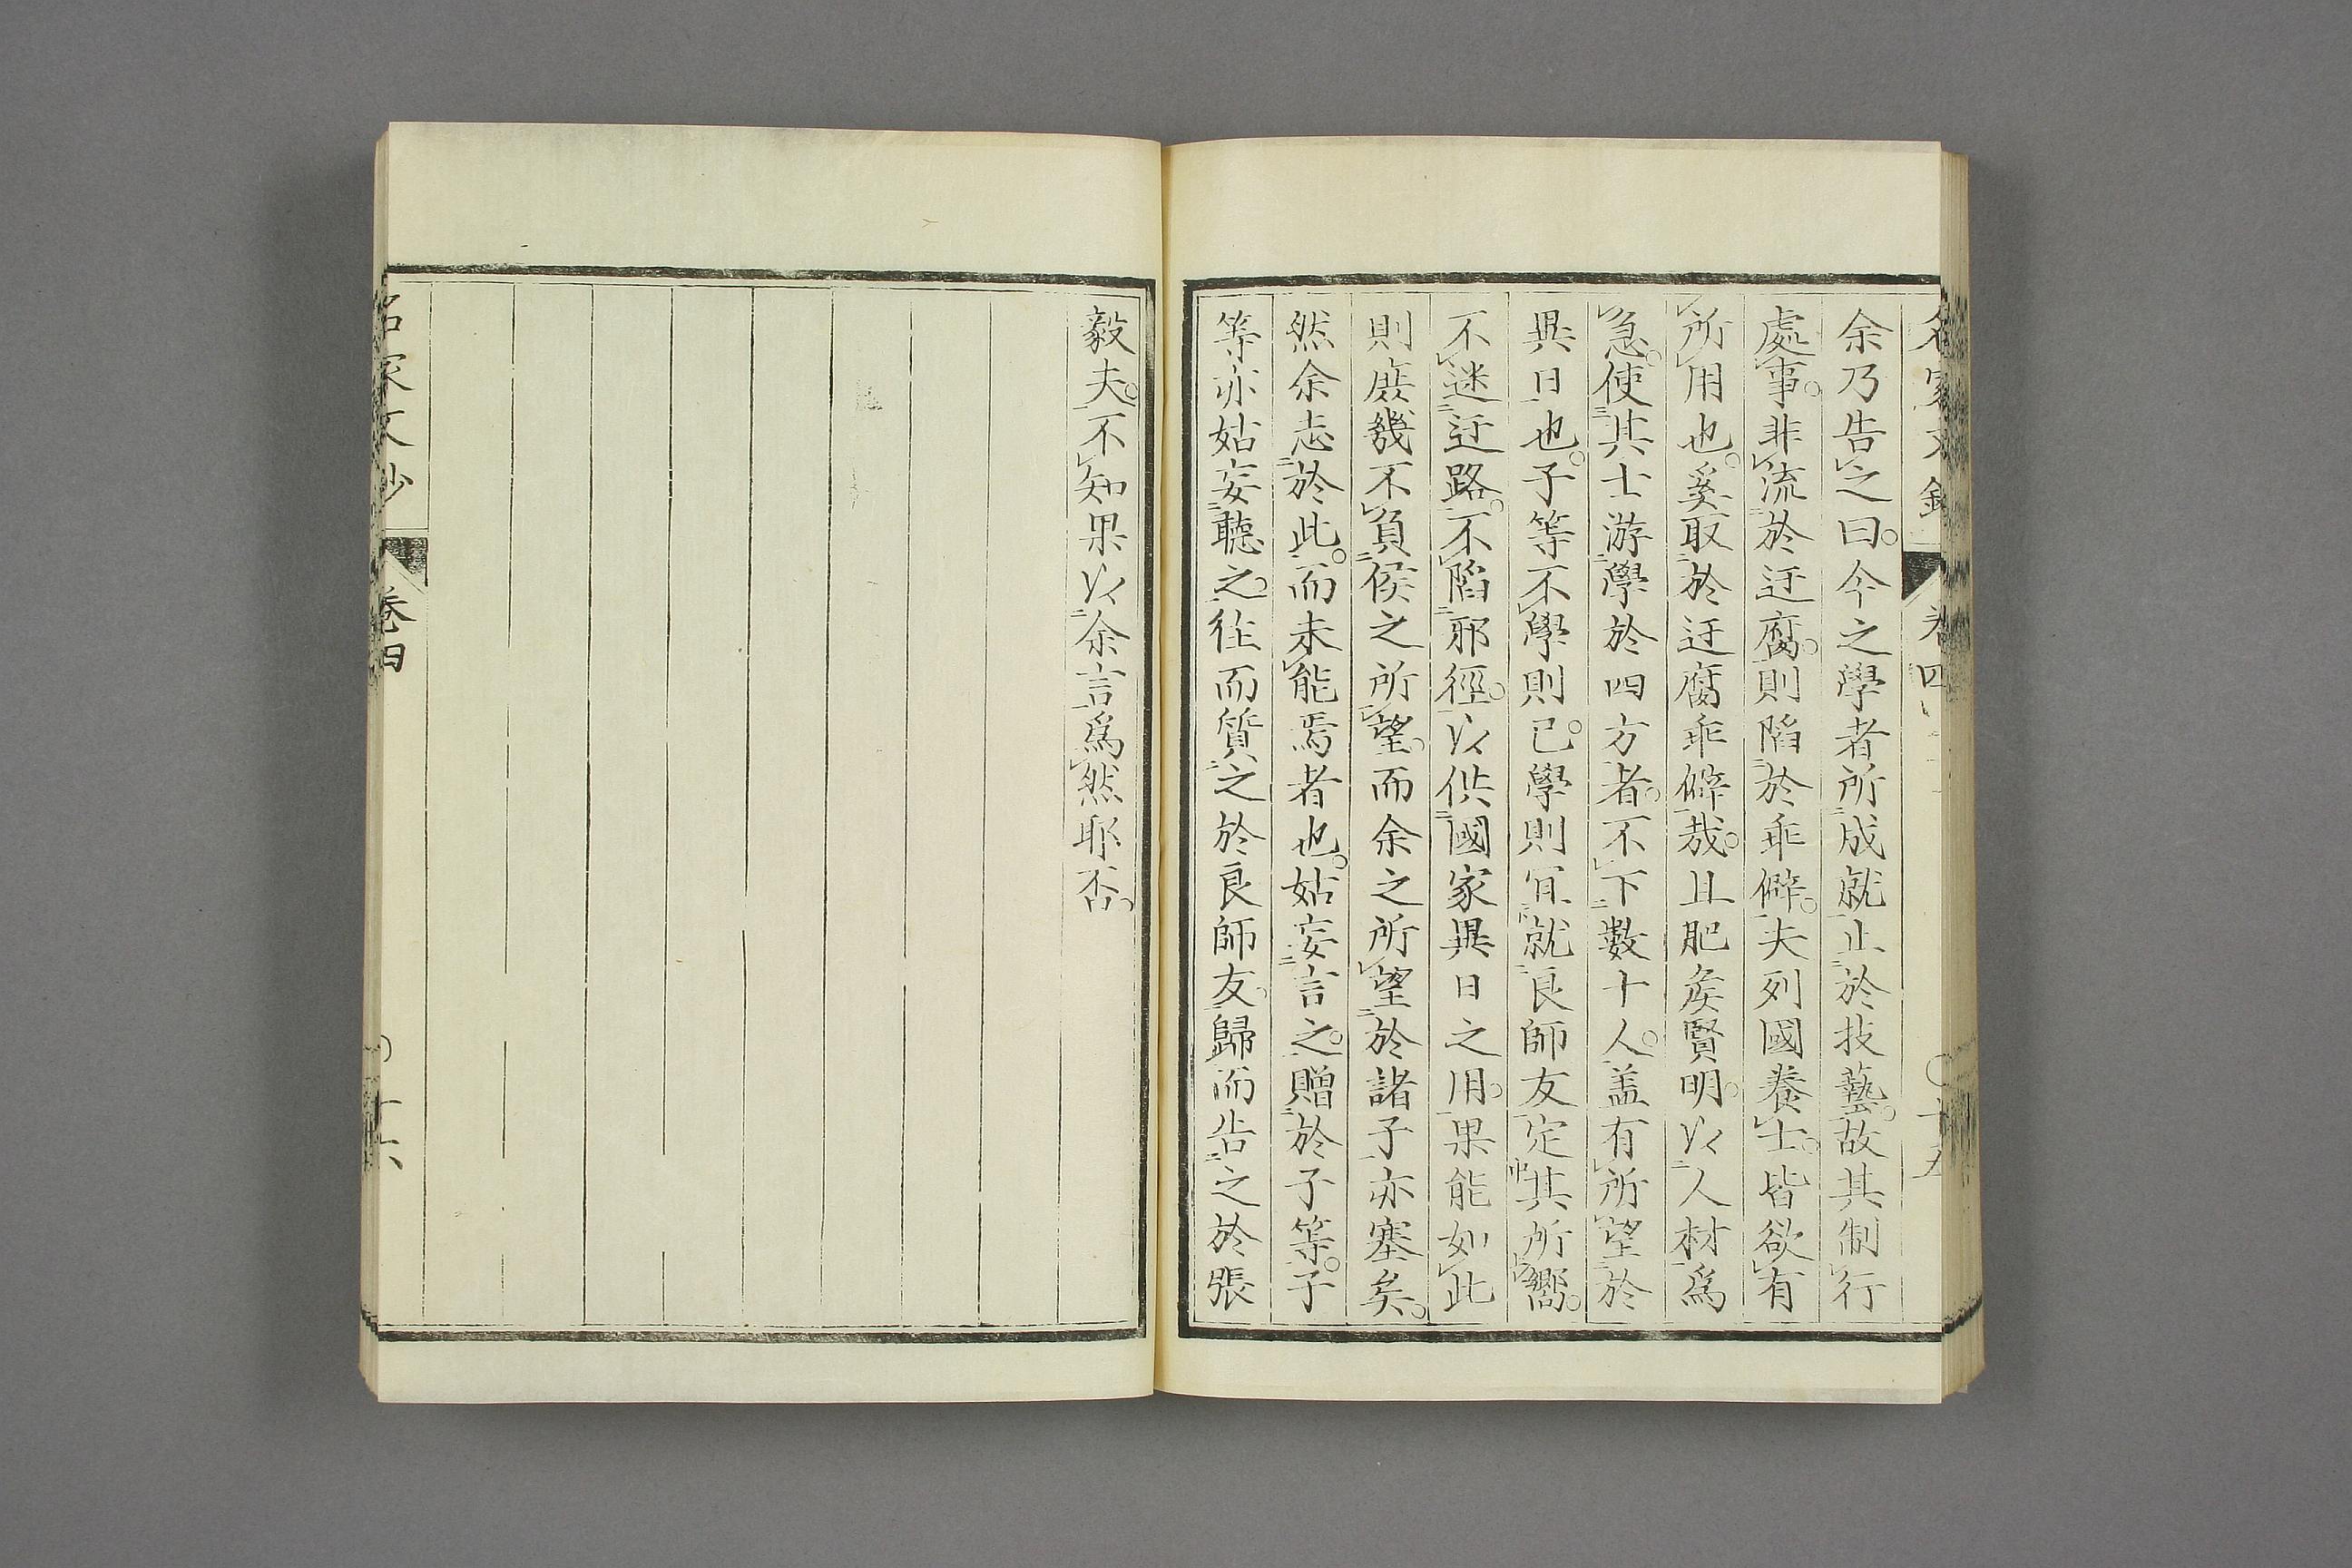 余乃告之曰。今之學者所成就止於技藝。故其制行
處事。非流於迂腐。則陷於乖僻。夫列國養士。皆欲有
所用也。奚取於迂腐乖僻哉。且肥矦賢明。以人材爲
急。使其士游學於四方者。不下數十人。盖有所望於
異日也。子等不學則已。學則冝就良師友定其所嚮。
不迷迂路。不陷邪徑。以供國家異日之用。果能如此
則庶幾不負侯之所望。而余之所望於諸子亦塞矣。
然余志於此。而未能焉者也。姑妄言之。贈於子等。子
等亦姑妄聽之。徃而質之於良師友。歸而告之於張
毅夫。不知果以余言爲然耶否。
名家文鈔
卷四
十六